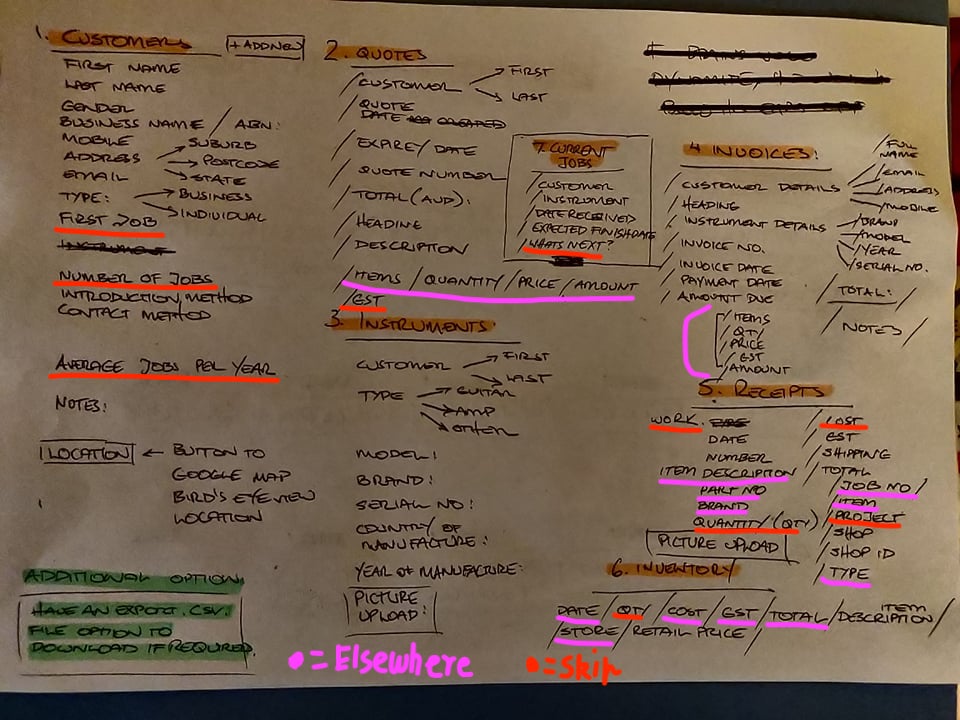 1. CUSTOMERS
+ ADD NEW
FIRST NAME
LAST NAME
GENDER
BUSINESS NAME / ABN:
MOBILE
ADDRESS
SUBURB
POSTCODE
STATE
EMAIL
TYPE:
BUSINESS
INDIVIDUAL
FIRST JOB
INSTRUMENT
NUMBER OF JOBS
INTRODUCTION METHOD
CONTACT METHOD
AVERAGE JOBS PER YEAR
NOTES:
LOCATION ← BUTTON TO
GOOGLE MAP
BIRD'S EYE VIEW
LOCATION
ADDITIONAL OPTION
HAVE AN EXPORT .CSV.
FILE OPTION TO
DOWNLOAD IF REQUIRED.
2. QUOTES
/ CUSTOMER
FIRST
LAST
/ QUOTE
DATE
/ EXPIREY DATE
/ QUOTE NUMBER
/ TOTAL (AUD):
/ HEADING
/ DESCRIPTION
/ ITEMS / QUANTITY / PRICE / AMOUNT
/ GST
7. CURRENT
JOBS
/ CUSTOMER
/ INSTRUMENT
/ DATE RECEIVED
/ EXPECTED FINISH DATE
/ WHATS NEXT?
3. INSTRUMENTS
CUSTOMER
FIRST
LAST
TYPE
GUITAR
AMP
OTHER
MODEL:
BRAND:
SERIAL NO:
COUNTRY OF
MANUFACTURE:
YEAR OF MANUFACTURE:
PICTURE
UPLOAD:
4 INVOICES:
/ CUSTOMER DETAILS
/ FULL
NAME
/ EMAIL
/ ADDRESS
/ MOBILE
/ HEADING
/ INSTRUMENT DETAILS
/ BRAND
/ MODEL
/ YEAR
/ SERIAL NO.
/ INVOICE NO.
/ INVOICE DATE
/ PAYMENT DATE
/ AMOUNT DUE
/ ITEMS
/ QTY
/ PRICE
/ GST
/ AMOUNT
/ TOTAL: /
/ NOTES /
5. RECEIPTS
WORK
DATE
NUMBER
ITEM DESCRIPTION
PART NO
BRAND
QUANTITY (QTY)
PICTURE UPLOAD
/ COST
/ GST
/ SHIPPING
/ TOTAL
/ JOB NO /
ITEM
/ PROJECT
/ SHOP
/ SHOP ID
/ TYPE
6. INVENTORY
/ DATE / QTY / COST / GST / TOTAL / ITEM DESCRIPTION /
/ STORE / RETAIL PRICE /
= Elsewhere
= Skip